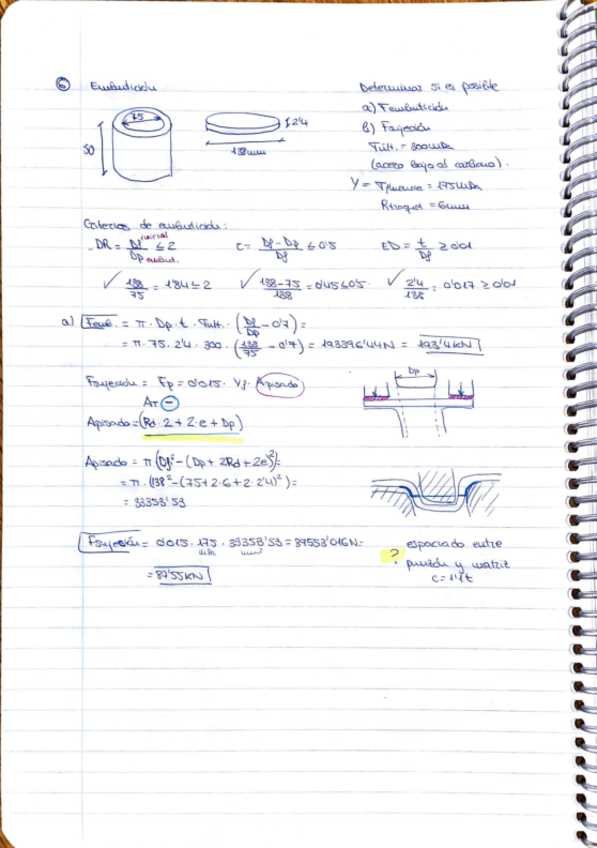 ⑥ Embutición
Determinar si es posible
a) Fembutición
b) Fsujeción
Tult. = 300MPa
(acero bajo al carbono).
Y = Tfluencia = 175MPa
Rtroquel = 6mm
75
50
2'4
138mm
Criterios de embutición:
DR = Df inicial / Dp embut. ≤ 2
C = Df - Dp / Df ≤ 0'5
ED = t / Df ≥ 0'01
✓ 138 / 75 = 1'84 ≤ 2
✓ 138-75 / 138 = 0'45 ≤ 0'5
✓ 2'4 / 138 = 0'017 ≥ 0'01
a) Femb. = π · Dp · t · Tult. · (Df / Dp - 0'7) =
= π · 75 · 2'4 · 300 · (138 / 75 - 0'7) = 193396'44N = 193'4KN
Fsujeción = Fp = 0'015 · Yf · Apisado
AT -
Apisado = (Rd · 2 + 2 · e + Dp)
Dp
Apisado = π (Df² - (Dp + 2Rd + 2e)²) =
= π · (138² - (75 + 2 · 6 + 2 · 2'4)²) =
= 33353'53
Fsujeción = 0'015 · 175 · 33353'53 = 87553'016N =
MPa mm²
= 87'55KN
? espaciado entre
punzón y matriz
c = 1'1t